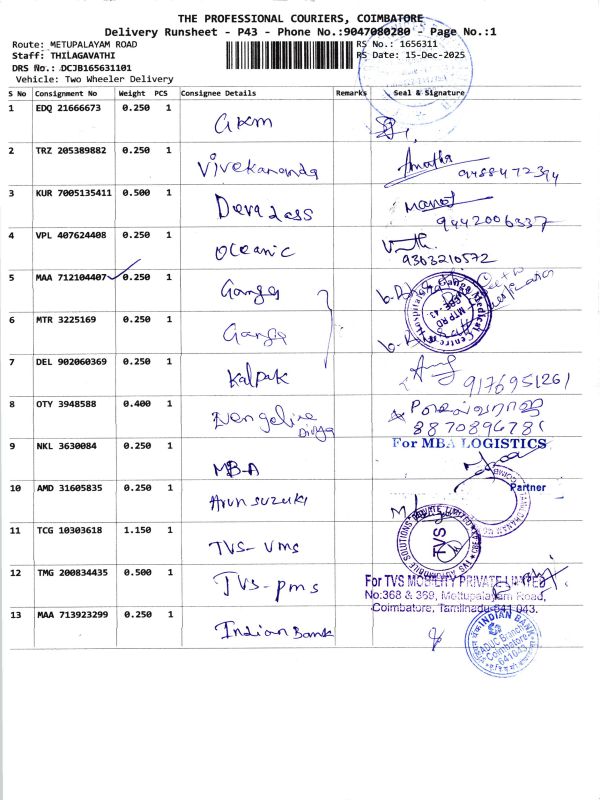 THE PROFESSIONAL COURIERS, COIMBATORE
Delivery Runsheet - P43 - Phone No.:9047080280 - Page No.:1
Route: METUPALAYAM ROAD
RS No.: 1656311
Staff: THILAGAVATHI
RS Date: 15-Dec-2025
DRS No.: DCJB165631101
Vehicle: Two Wheeler Delivery
S No Consignment No Weight PCS Consignee Details Remarks Seal & Signature
1 EDQ 21666673 0.250 1 GKM
2 TRZ 205389882 0.250 1 Vivekananda Amutha
9488472394
3 KUR 7005135411 0.500 1 Devadass Manoj
9442006337
4 VPL 407624408 0.250 1 Oceanic
9363210572
5 MAA 712104407 0.250 1 Ganga
Ganga Medical Centre & Hospitals
MTP RD
CBE - 43
6 MTR 3225169 0.250 1 Ganga
7 DEL 902060369 0.250 1 Kalpak
9176951261
8 OTY 3948588 0.400 1 Divya
8870896781
9 NKL 3630084 0.250 1 MBA
For MBA LOGISTICS
Partner
10 AMD 31605835 0.250 1 Arun suzuki
11 TCG 10303618 1.150 1 TVS- VMS
TVS
12 TMG 200834435 0.500 1 TVS-pms
For TVS MOBILITY PRIVATE LIMITED
No:368 & 369, Mettupalayam Road,
Coimbatore, Tamilnadu-641 043.
13 MAA 713923299 0.250 1 Indian Bank
INDIAN BANK
ADUC Branch
Coimbatore
641043